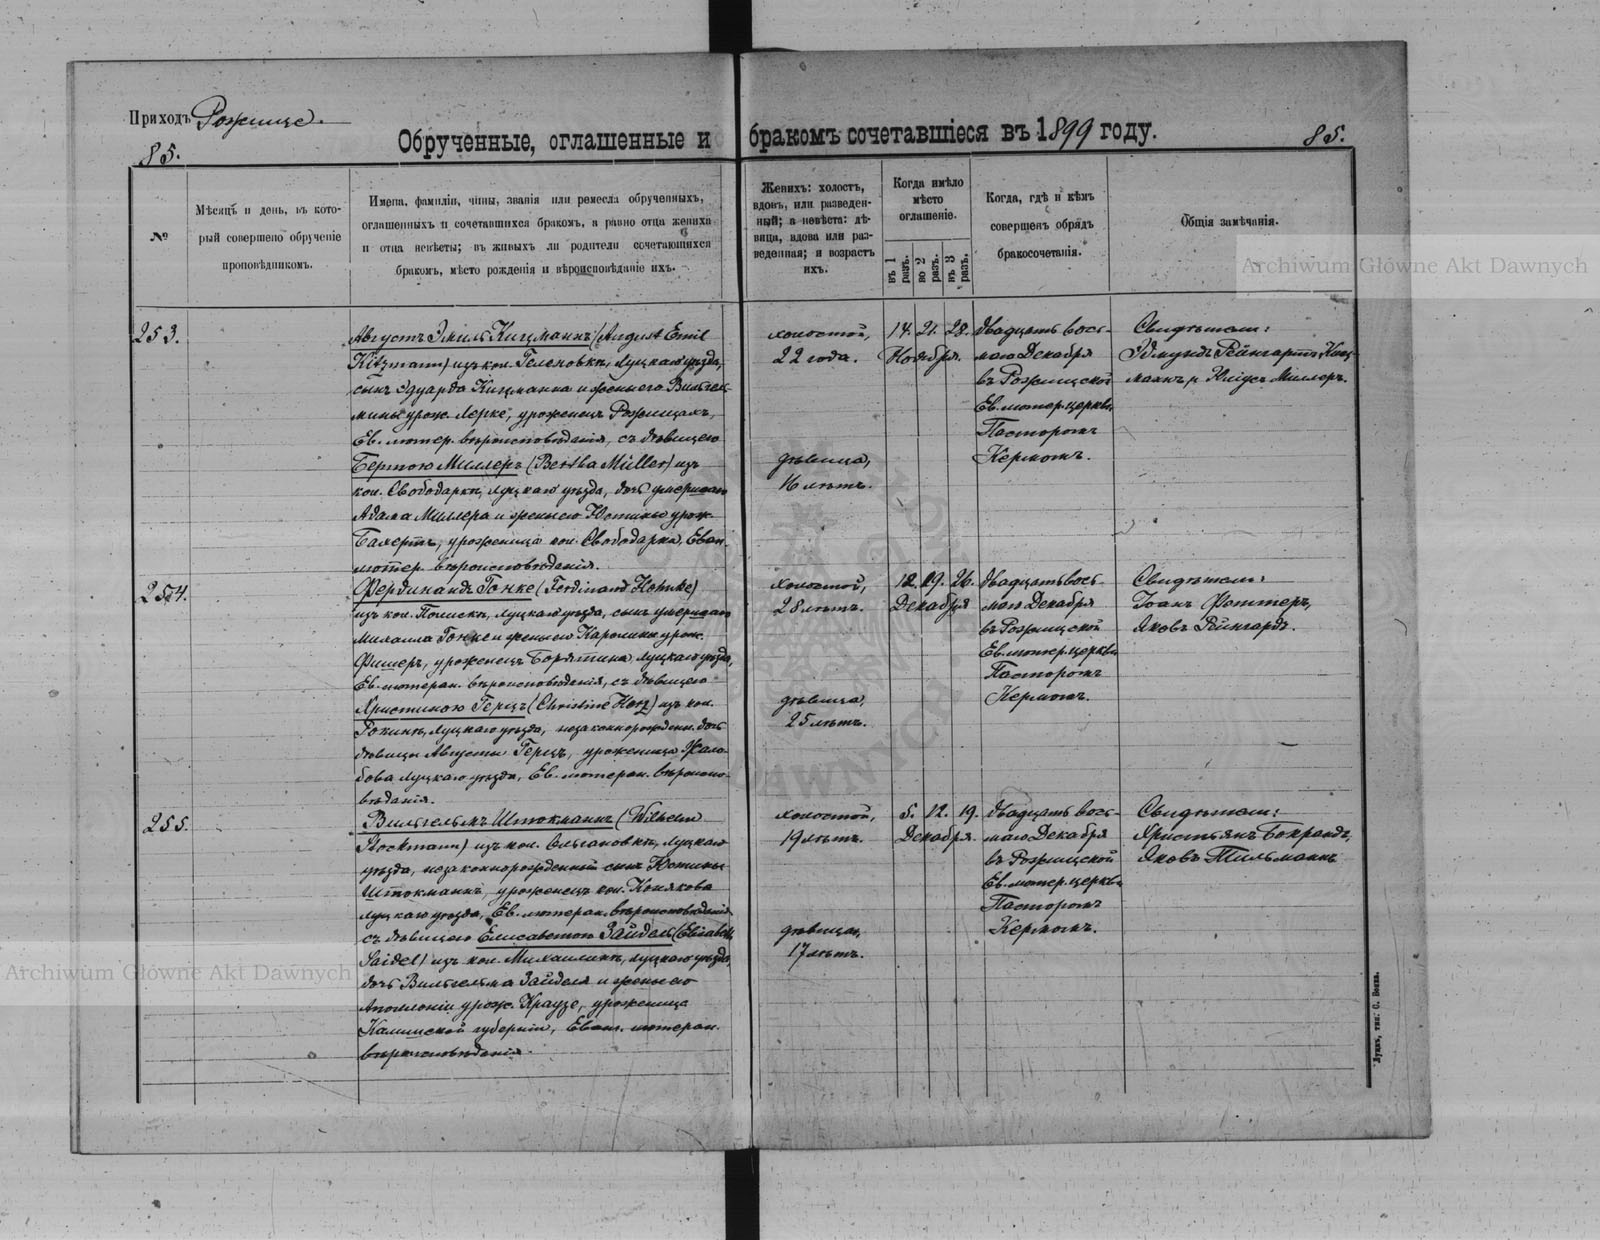 Приходъ Рожище.
85.
Обрученные, оглашенные и бракомъ сочетавшіеся въ 1899 году.
85.
№
Мѣсяцъ и день, въ кото-
рый совершено обрученіе
проповѣдникомъ.
Имена, фамиліи, чины, званія или ремесла обрученныхъ,
оглашенныхъ и сочетавшихся бракомъ, а равно отца жениха
и отца невѣсты; въ живыхъ ли родители сочетающихся
бракомъ, мѣсто рожденія и вѣроисповѣданіе ихъ.
Женихъ: холостъ,
вдовъ, или разведен-
ный; а невѣста: дѣ-
вица, вдова или раз-
веденная; и возрастъ
ихъ.
Когда имѣло
мѣсто
оглашеніе.
въ 1 разъ.
во 2 разъ.
въ 3 разъ.
Когда, гдѣ и кѣмъ
совершенъ обрядъ
бракосочетанія.
Общія замѣчанія.
253.
Августъ Эмиль Кицманнъ (August Emil
Kitzmann) изъ кол. Геленовки, Луцкаго уѣзда,
сынъ Эдуарда Кицманна и жены его Вильгель-
мины урож. Лерке, уроженецъ Рожищахъ,
Ев. лютер. вѣроисповѣданія, съ дѣвицею
Бертою Миллеръ (Bertha Müller) изъ
кол. Свободарки, Луцкаго уѣзда, дочь умершаго
Адама Миллера и жены его Юстины урож.
уроженица кол. Свободарка, Еван.
лютер. вѣроисповѣданія.
холостой,
22 года.
дѣвица,
16 лѣтъ.
14. 21. 28.
Ноября.
Двадцать вось-
маго Декабря
въ Рожищской
Ев. лютер. церкви
Пасторомъ
Кермомъ.
Свидѣтели:
Эдмундъ Рейнгартъ Киц-
маннъ, Миллеръ.
254.
Фердинандъ Гонке (Ferdinand Hohnke)
изъ кол. Луцкаго уѣзда, сынъ умершаго
Михаила Гонке и жены его Каролины урож.
Фишеръ, уроженецъ Борятина Луцкаго уѣзда,
Ев. лютеран. вѣроисповѣданія, съ дѣвицею
Христиною Герцъ (Christine Herz) изъ кол.
Луцкаго уѣзда, незаконнорожден. дочь
дѣвицы Августы Герцъ, уроженица Жало-
бова Луцкаго уѣзда, Ев. лютеран. вѣроиспо-
вѣданія.
холостой,
28 лѣтъ.
дѣвица,
25 лѣтъ.
12. 19. 26.
Декабря
Двадцать вось-
маго Декабря
въ Рожищской
Ев. лютер. церкви
Пасторомъ
Кермомъ.
Свидѣтели:
Іоанъ
Яковъ Рейнгардъ.
255.
Вильгельмъ Штокманнъ (Wilhelm
Stockmann) изъ кол. Ольгановки, Луцкаго
уѣзда, незаконнорожденный сынъ Юстины
Штокманнъ, уроженецъ кол. Конякова
Луцкаго уѣзда, Ев. лютеран. вѣроисповѣданія
съ дѣвицею Елисаветою Зайдель (Elisabeth
Saidel) изъ кол. Михаилинки, Луцкаго уѣзда,
дочь Вильгельма Зайделя и жены его
Аполоніи урож. Краузе, уроженица
Калишской губерніи, Еван. лютеран.
вѣроисповѣданія.
холостой,
19 лѣтъ.
дѣвица,
17 лѣтъ.
5. 12. 19.
Декабря.
Двадцать вось-
маго Декабря
въ Рожищской
Ев. лютер. церкви
Пасторомъ
Кермомъ.
Свидѣтели:
Христьянъ
Яковъ Тильманнъ
Луцкъ, тип. С. Бокка.
Archiwum Główne Akt Dawnych
Archiwum Główne Akt Dawnych